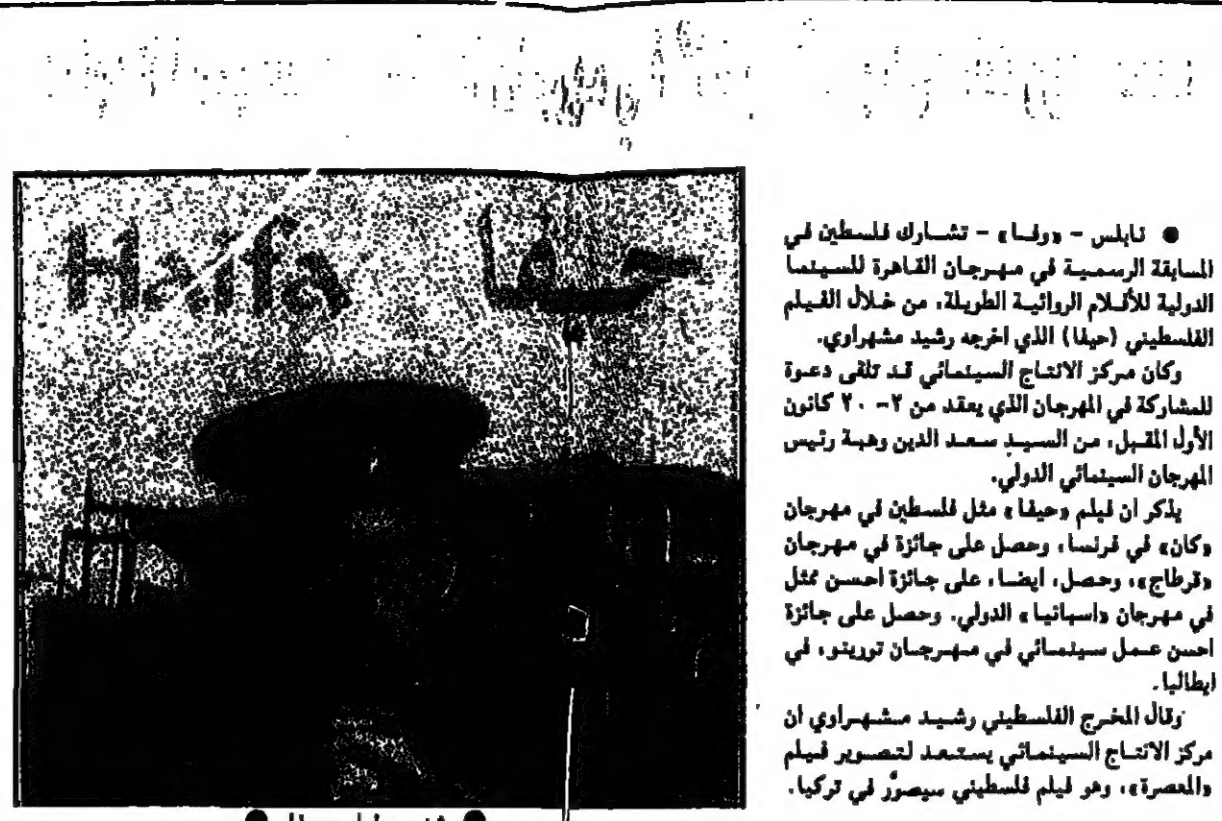 ● نابلس - «وفا» - تشارك فلسطين في
المسابقة الرسمية في مهرجان القاهرة للسينما
الدولية للأفلام الروائية الطويلة، من خلال الفيلم
الفلسطيني (حيفا) الذي اخرجه رشيد مشهراوي.
وكان مركز الانتاج السينمائي قد تلقى دعوة
للمشاركة في المهرجان الذي يعقد من ٢- ٢٠ كانون
الأول المقبل، من السيد سعد الدين وهبة رئيس
المهرجان السينمائي الدولي.
يذكر ان فيلم «حيفا» مثل فلسطين في مهرجان
«كان» في فرنسا، وحصل على جائزة في مهرجان
«قرطاج»، وحصل، ايضا، على جائزة احسن ممثل
في مهرجان «اسبانيا» الدولي. وحصل على جائزة
احسن عمل سينمائي في مهرجان تورينو، في
ايطاليا.
وقال المخرج الفلسطيني رشيد مشهراوي ان
مركز الانتاج السينمائي يستعد لتصوير فيلم
«المعصرة»، وهو فيلم فلسطيني سيصوَّر في تركيا.
Haifa حيفا